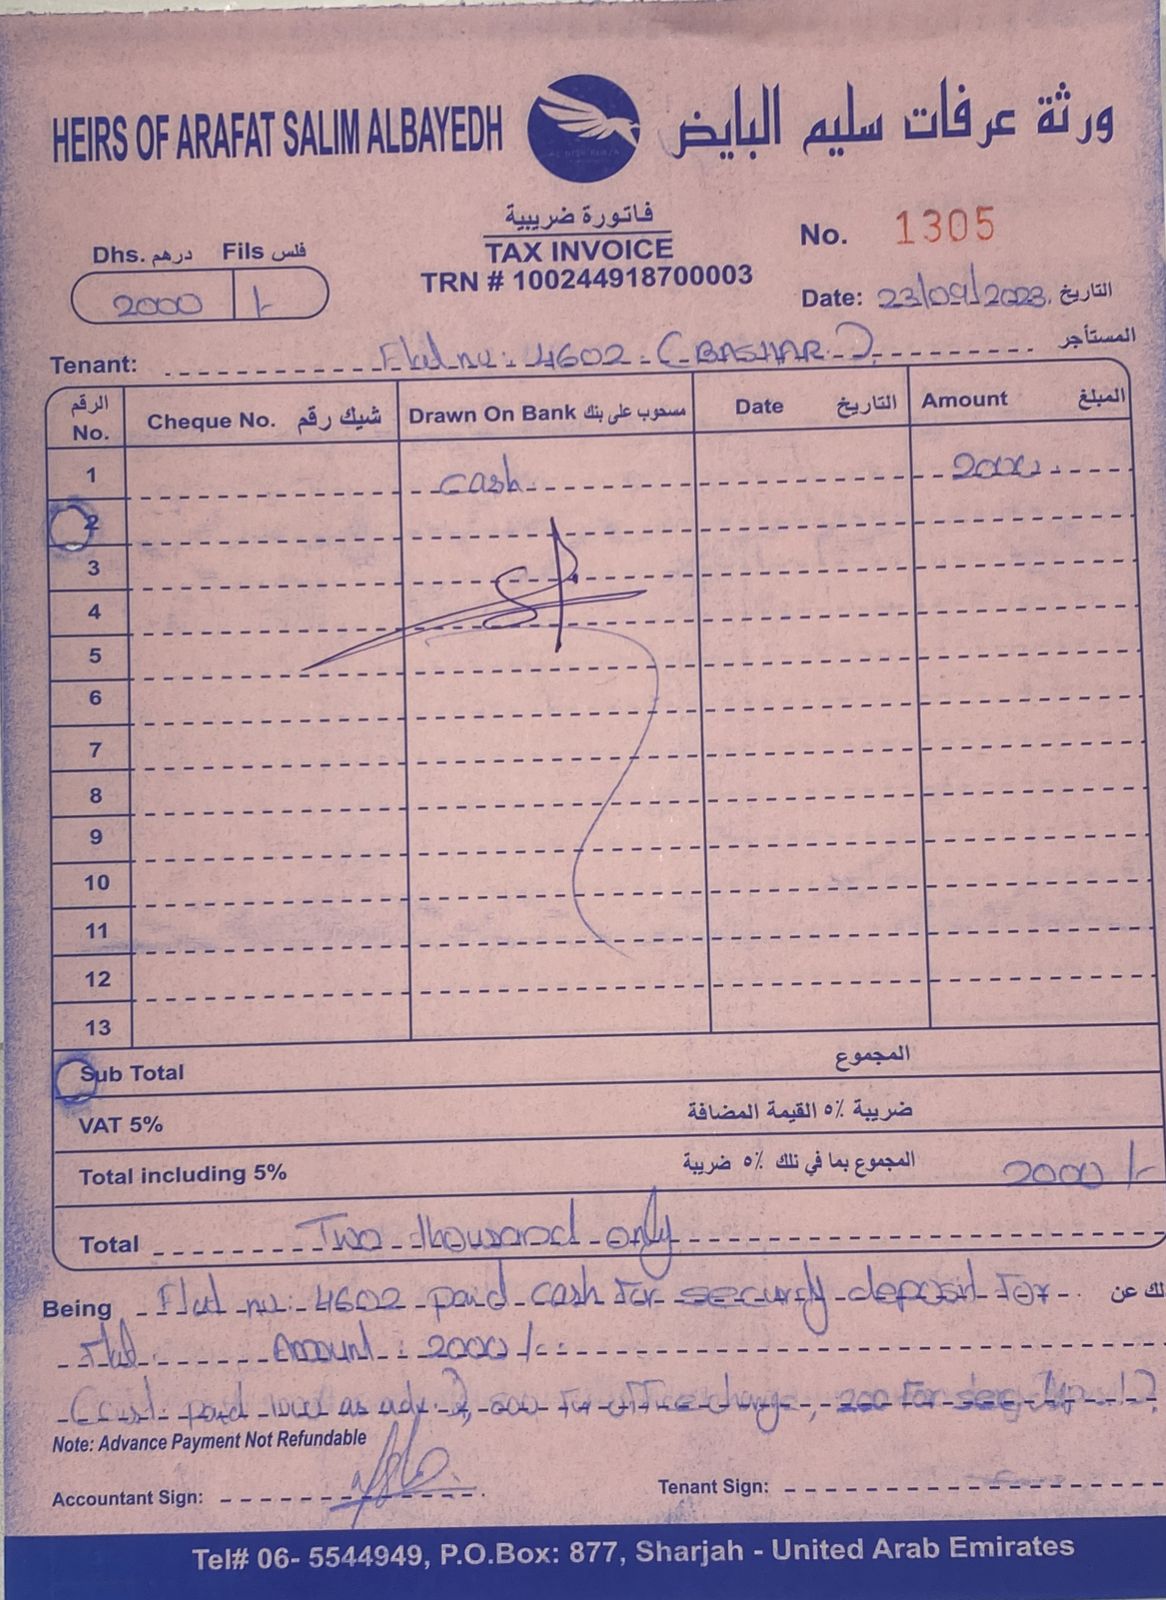 HEIRS OF ARAFAT SALIM ALBAYEDH
ورثة عرفات سليم البايض
فاتورة ضريبية
TAX INVOICE
TRN # 100244918700003
No. 1305
Date: 23/09/2023 التاريخ
Dhs. درهم Fils فلس
2000 /-
Tenant: Flat no: 4602 (BASHAR) المستأجر
الرقم No. Cheque No. شيك رقم Drawn On Bank مسحوب على بنك Date التاريخ Amount المبلغ
1 cash 2000
2
3
4
5
6
7
8
9
10
11
12
13
Sub Total المجموع
VAT 5% ضريبة ٥٪ القيمة المضافة
Total including 5% المجموع بما في ذلك ٥٪ ضريبة 2000 /-
Total Two thousand only
Being Flat no: 4602 paid cash for security deposit for لك عن
Flat. Amount : 2000 /-
paid as adv. 500 for office charge, 200 for
Note: Advance Payment Not Refundable
Accountant Sign:
Tenant Sign:
Tel# 06- 5544949, P.O.Box: 877, Sharjah - United Arab Emirates